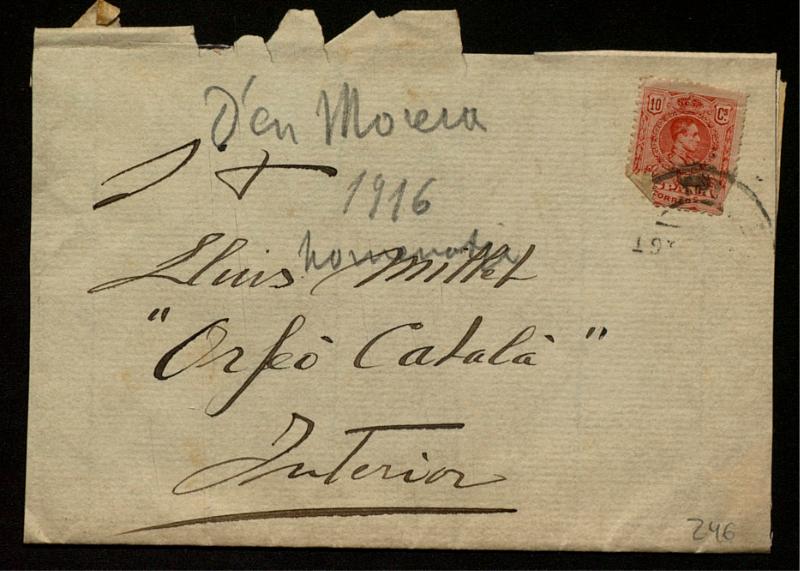 D'en Morera
1916
homenatje
Lluis Millet
"Orfeò Català"
Interior
10 Cs
CORREOS
246